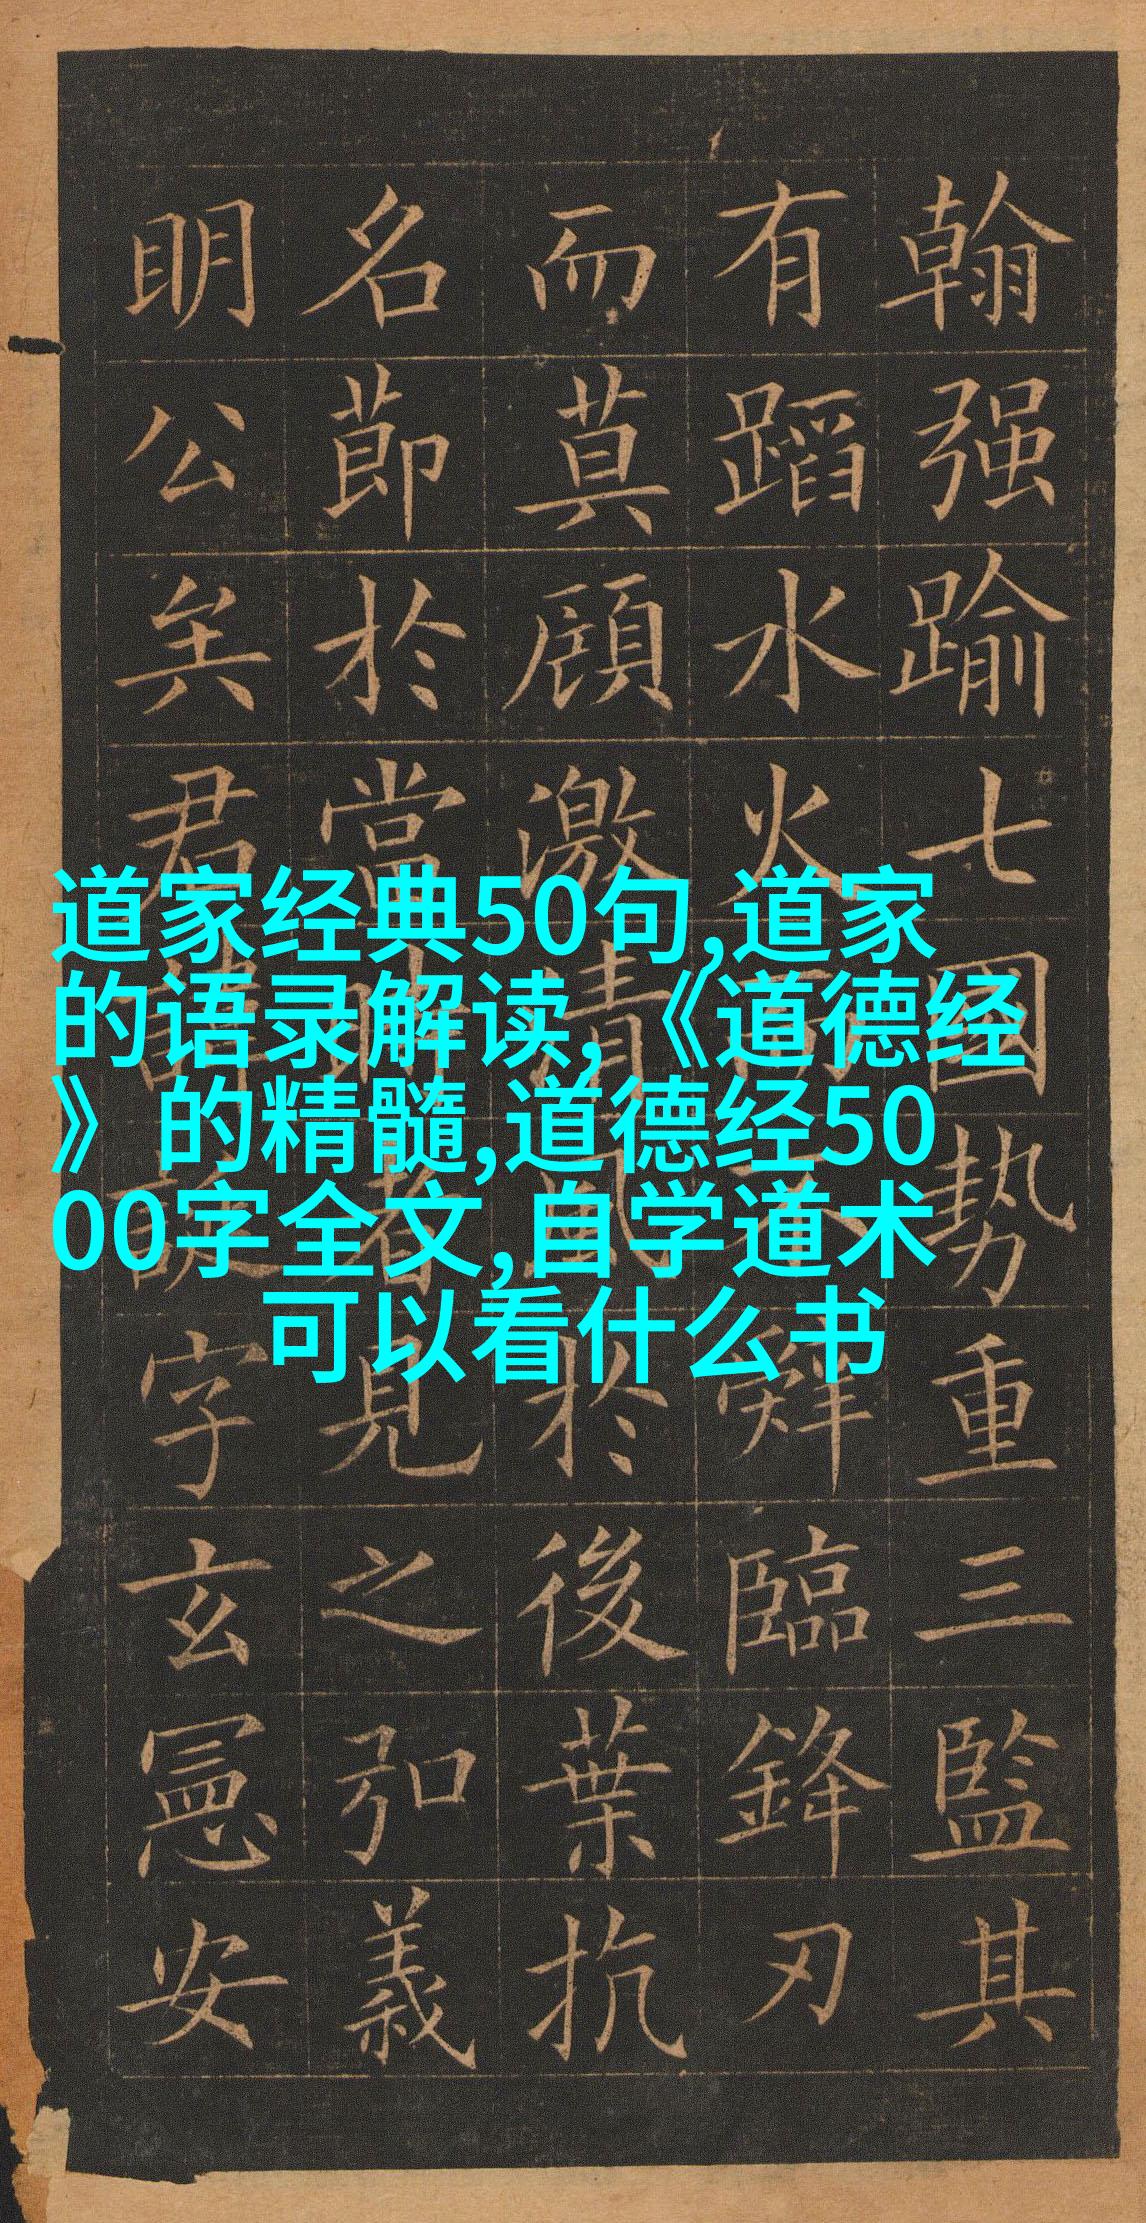 道家经典50句,道家
的语录解读,《道德经
》的精髓,道德经50
00字全文,自学道术
可以看什么书
翰强踰七國勢重三監其
有蹈水火而不辭臨鋒刃
而莫顧激清風於後葉抗
名莭於當時者見之弘義
明公矣君諱誕字玄憲安